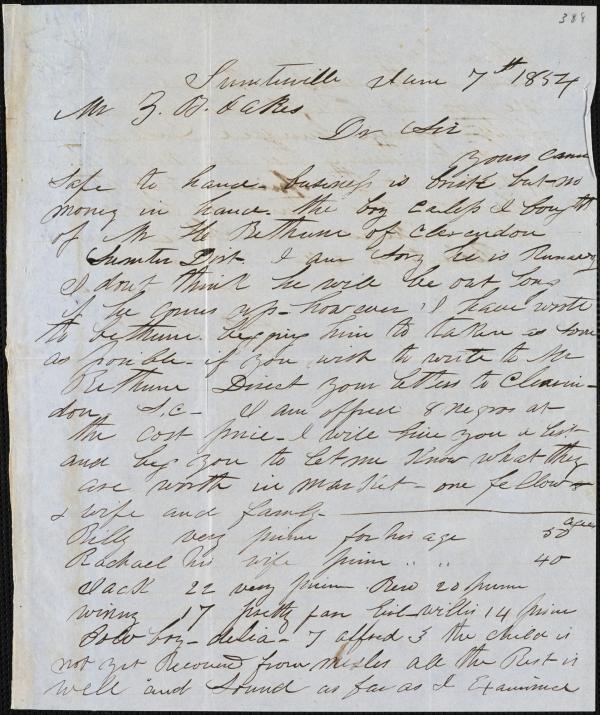 384
Sumterville June 7th 1854
Mr Z. B. Oakes
Dr Sir
yours came
safe to hand - business is brisk but no
money in hand. the boy Caleb I bought
of Mr Bethune of Clarendon
Sumter Dist I am sory he is Runaway
I dont think he will be out long
if he comes up - however I have wrote
to bethune beging him to taken as soon
as posible - if you wish to write to Mr
Bethune Direct your letters to Claren-
don S.C - I am offered 8 negros at
the cost price - I will give you a list
and beg you to let me know what they
are worth in market - one fellow &
& wife and family
ages
Billy very prime for his age 50
Rachael his wife prime " " 40
Jack 22 very prime Ben 20 prime
winny 17 pretty fair Girl willis 14 prime
boy - delia - 7 alfred 3 the child is
not yet Recoverd from mesles all the Rest is
well and Sound as far as I Examined